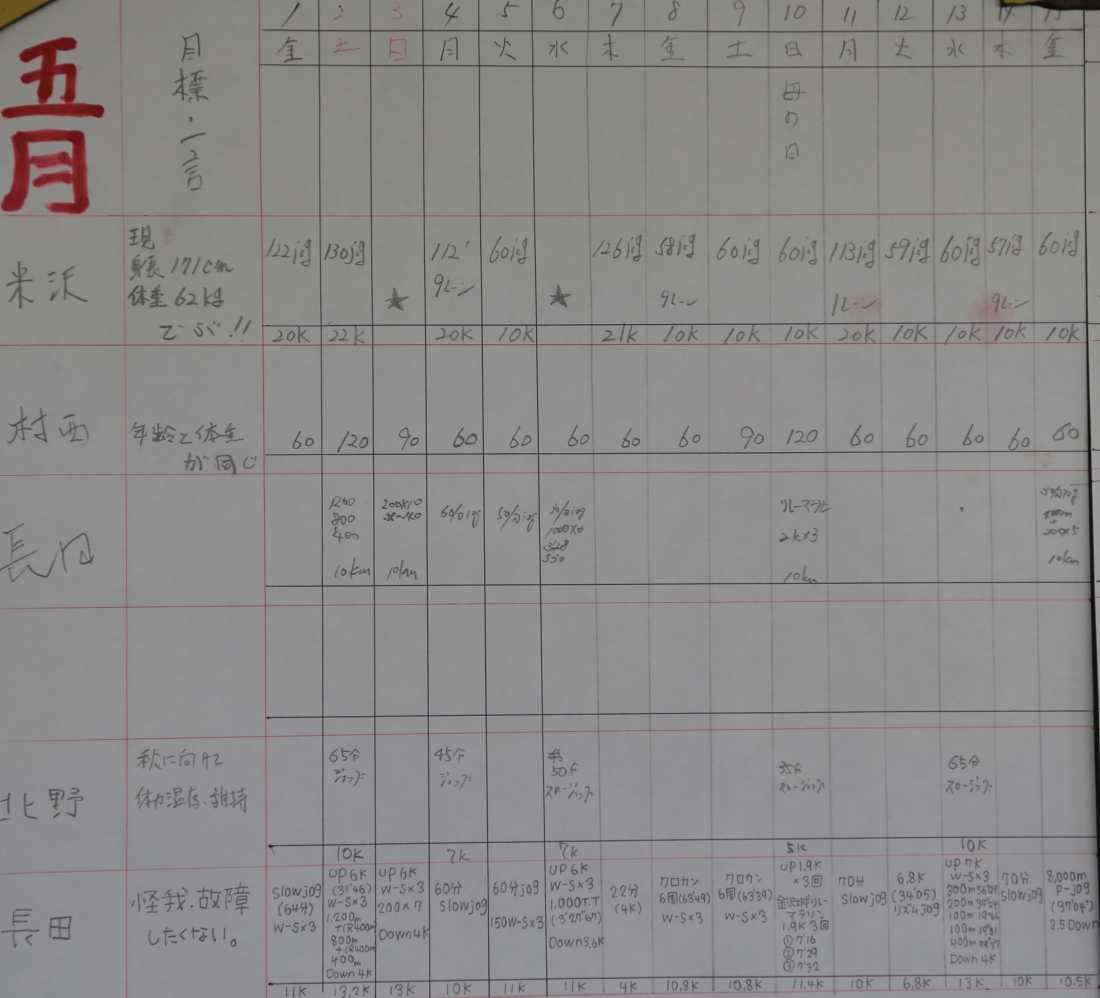 五月
目標・一言
1 2 3 4 5 6 7 8 9 10 11 12 13 14 15
金 土 日 月 火 水 木 金 土 日 月 火 水 木 金
母の日
米沢
現
身長171cm
体重62kg
でぶ!!
122jog 130jog 112' 60jog 126jog 58jog 60jog 60jog 113jog 59jog 60jog 57jog 60jog
★ 9レーン ★ 9レーン 1レーン 9レーン
20K 22K 20K 10K 21K 10K 10K 10K 20K 10K 10K 10K 10K
村西
年齢と体重
が同じ
60 120 90 60 60 60 60 60 90 120 60 60 60 60 60
1200
800
400
10km
200×10
10km
60分jog
50分jog
50分jog
リレーマラソン
2k×3
10km
10km
北野
秋に向けて
体力温存、維持
65分
ジョッグ
45分
ジョッグ
50分
スロージョッグ
35分
スロージョッグ
65分
スロージョッグ
10K 7K 7K 5K 10K
長田
怪我、故障
したくない。
slowjog
(64分)
W-S×3
UP 6K
(31'46)
W-S×3
1,200m
+(R400m)
800m
+(R400m)
400m
Down 4K
UP 6K
W-S×3
200×7
Down 4K
60分
slowjog
60分jog
150W-S×3
UP 6K
W-S×3
1,000T.T
(3'27"67)
Down 3.6K
22分
(4K)
クロカン
6周(63'49)
W-S×3
クロカン
6周(63'39)
W-S×3
UP 1.9K
×3回
金沢城リレー
マラソン
1.9K 3回
①7'16
②7'29
③7'32
70分
slowjog
6.8K
(34'05)
リズムjog
UP 7K
W-S×3
Down 4K
70分
slowjog
8,000m
P-jog
(37'04")
2.5Down
11K 13.2K 13K 10K 11K 11K 4K 10.8K 10.8K 11.4K 10K 6.8K 13K 10K 10.5K